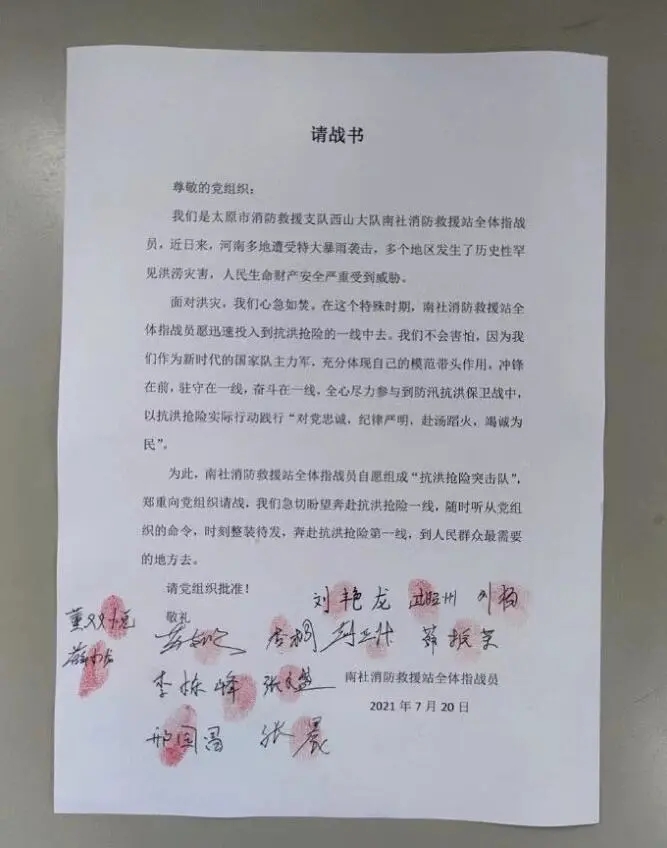 请战书
尊敬的党组织：
我们是太原市消防救援支队西山大队南社消防救援站全体指战
员，近日来，河南多地遭受特大暴雨袭击，多个地区发生了历史性罕
见洪涝灾害，人民生命财产安全严重受到威胁。
面对洪灾，我们心急如焚。在这个特殊时期，南社消防救援站全
体指战员愿迅速投入到抗洪抢险的一线中去。我们不会害怕，因为我
们作为新时代的国家队主力军，充分体现自己的模范带头作用。冲锋
在前，驻守在一线，奋斗在一线，全心尽力参与到防汛抗洪保卫战中，
以抗洪抢险实际行动践行“对党忠诚，纪律严明，赴汤蹈火，竭诚为
民”。
为此，南社消防救援站全体指战员自愿组成“抗洪抢险突击队”，
郑重向党组织请战，我们急切盼望奔赴抗洪抢险一线，随时听从党组
织的命令，时刻整装待发，奔赴抗洪抢险第一线，到人民群众最需要
的地方去。
请党组织批准！
刘艳龙 刘杨
敬礼
李栋峰
南社消防救援站全体指战员
2021 年 7 月 20 日
邢国昌 张晨